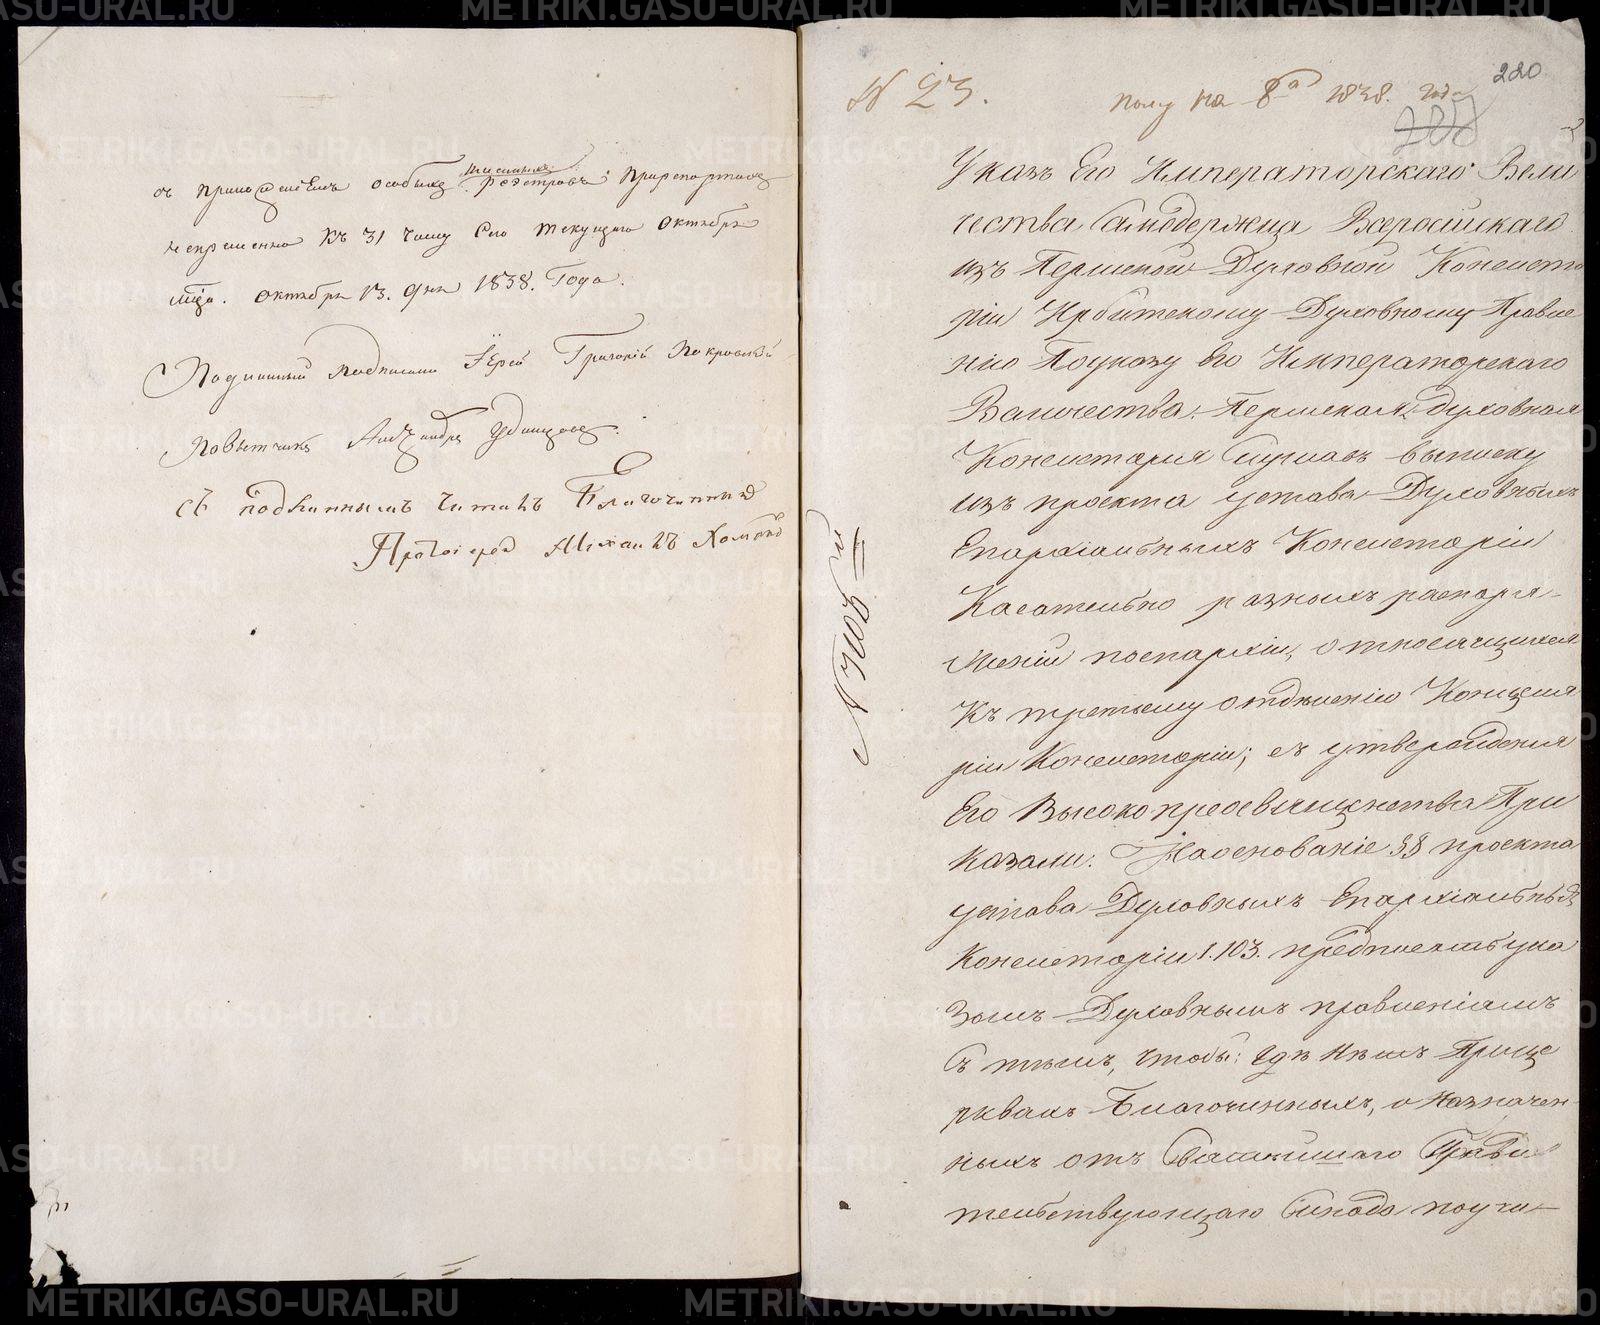 съ приложеніемъ особыхъ реэстровъ при рапортахъ
непременно къ 31 числу сего текущаго Октября
м-ца. Октября 13. дня 1838. Года.
Подлинный подписали Іерей Григорій Покровскій
Повытчикъ Александръ Удинцовъ.
Съ подлиннымъ читалъ Благочинный
Протоіерей Михаилъ
№ 23.
Полу на 8 1838. Года
220
Указъ Его Императорскаго Вели
чества Самодержца Всероссійскаго
изъ Пермской Духовной Консисто
ріи Ирбитскому Духовному Правле
нію По указу Его Императорскаго
Величества, Пермская духовная
Консисторія Слушавъ выписку
изъ проекта устава Духовныхъ
Епархіальныхъ Консисторіи
Касательно разныхъ распоря-
женіи поепархіи, относящихся
Къ третьему отделенію Канцеля
ріи Консисторіи; съ утвержденія
Его Высокопреосвященства При
казали: На основаніе §§ проекта
устава Духовныхъ Епархіальныхъ
Консисторіи 1. 103. предписать ука
зомъ Духовнымъ правленіямъ
Съ темъ, чтобы: где нетъ Прице
рквахъ Благочинныхъ, о назначен-
ныхъ отъ Святейшаго Прави
тельствующаго Синода поучи-
№ 3105
METRIKI.GASO-URAL.RU